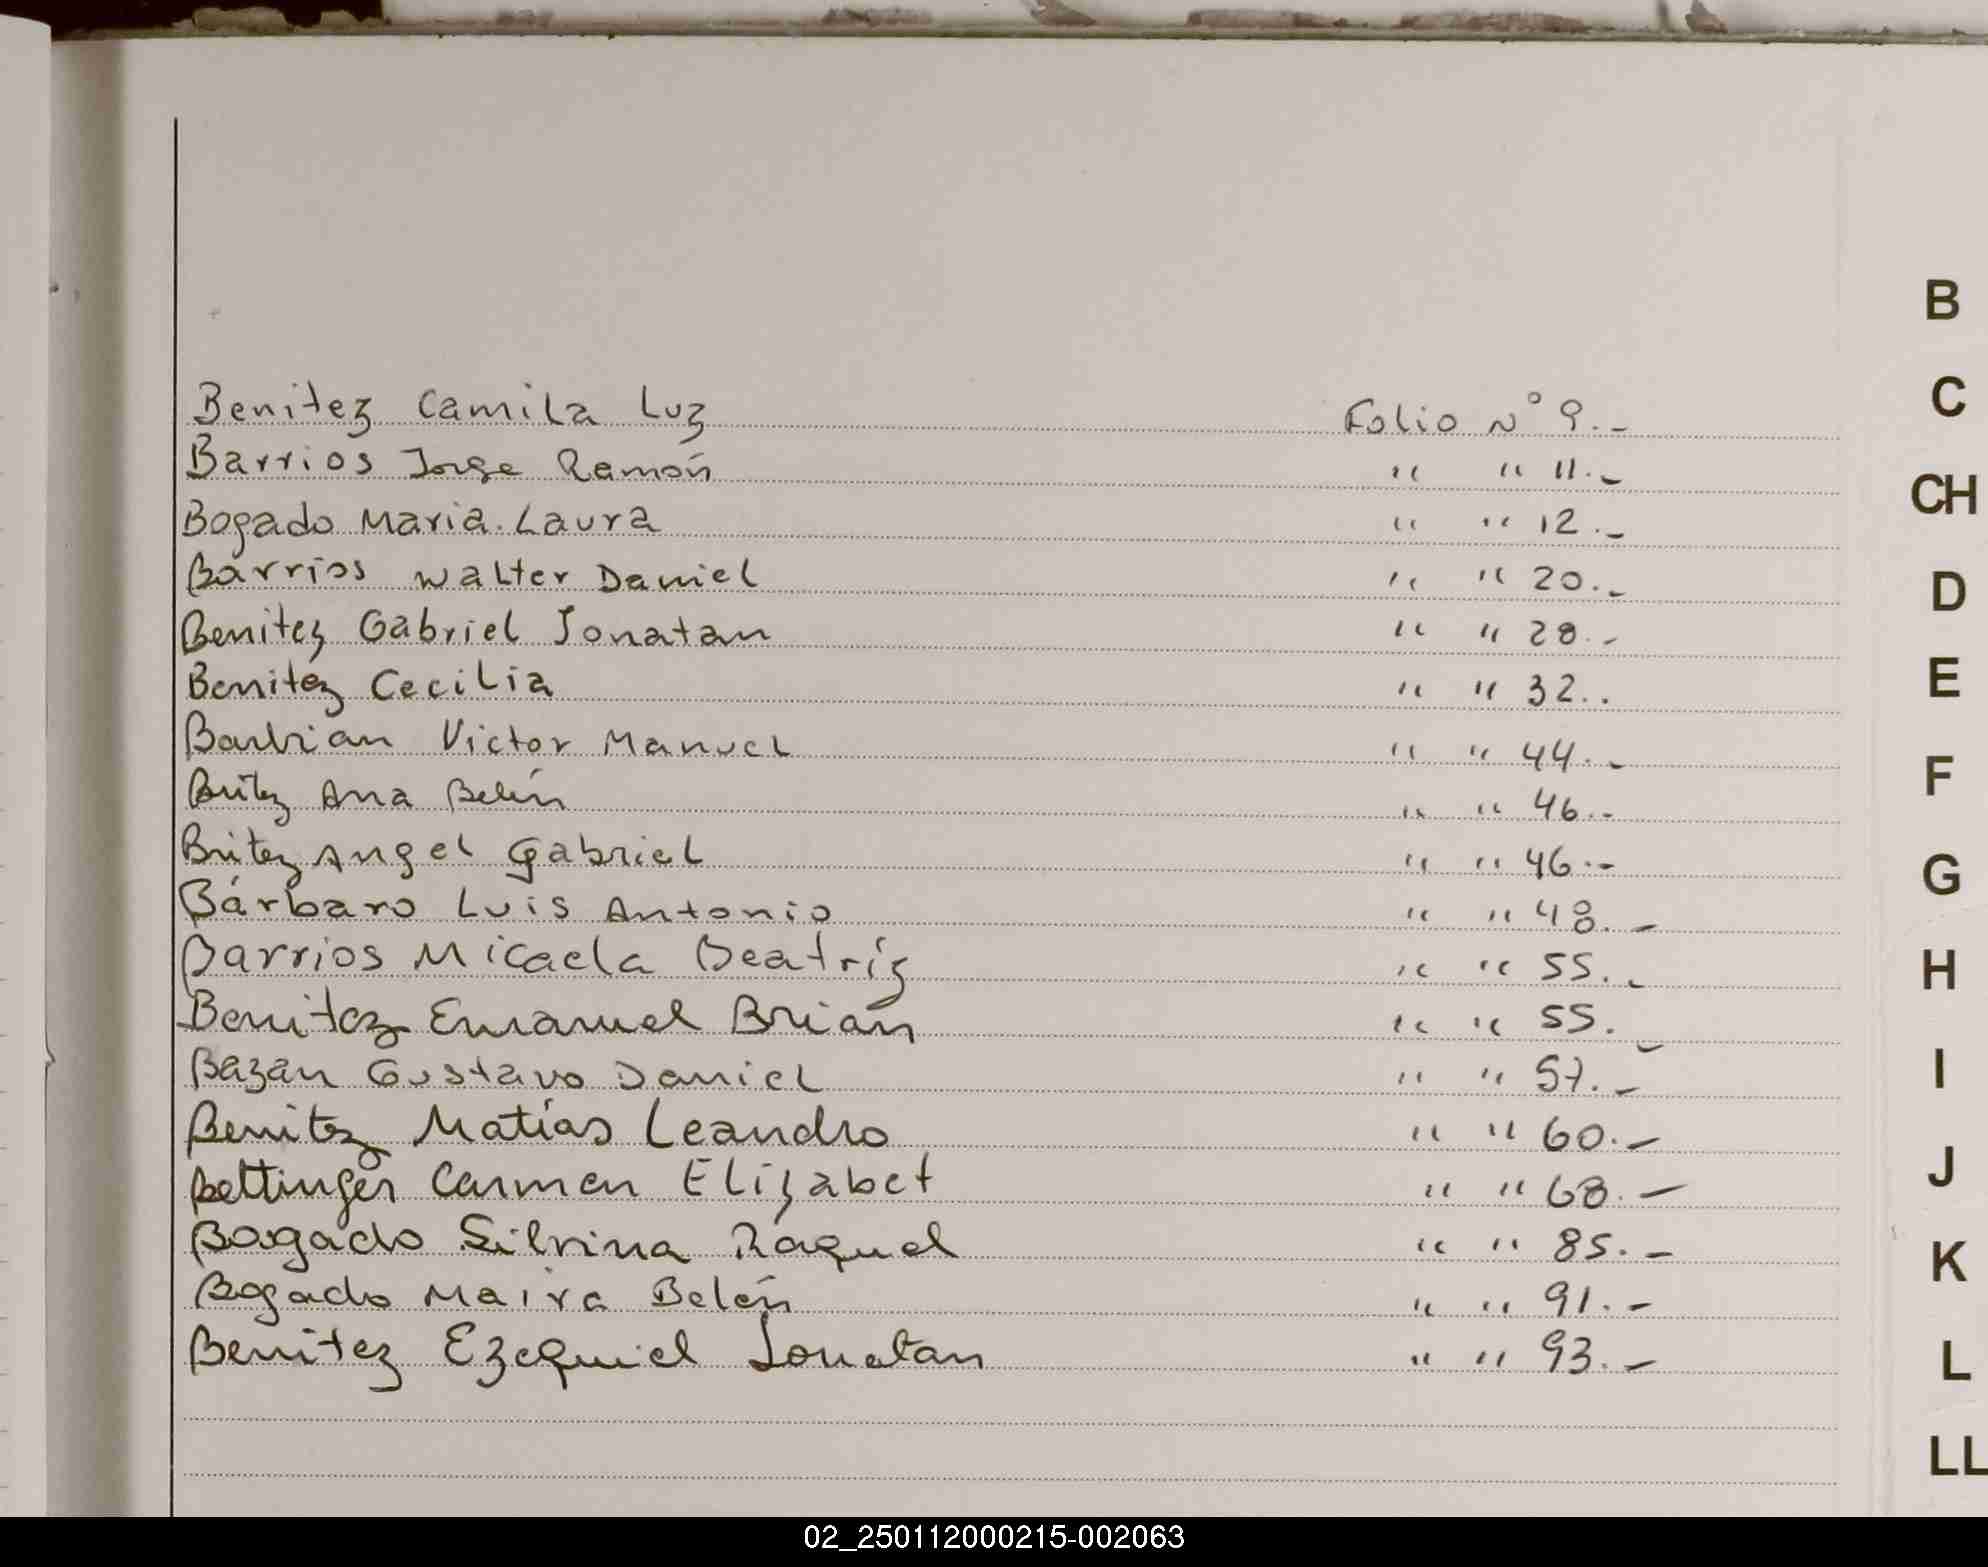 Benitez Camila Luz Folio N° 9.-
Barrios Jorge Ramón " " 11.-
Bogado Maria Laura " " 12.-
Barrios Walter Daniel " " 20.-
Benitez Gabriel Jonatan " " 28.-
Benitez Cecilia " " 32..
Barbian Victor Manuel " " 44.-
Britez Ana Belén " " 46.-
Britez Angel Gabriel " " 46.-
Bárbaro Luis Antonio " " 48.-
Barrios Micaela Beatríz " " 55.-
Benitez Emanuel Brian " " 55.-
Bazán Gustavo Daniel " " 57.-
Benitez Matías Leandro " " 60.-
Bettinger Carmen Elizabet " " 68.-
Bogado Silvina Raquel " " 85.-
Bogado Maira Belén " " 91.-
Benitez Ezequiel Jonatan " " 93.-
B
C
CH
D
E
F
G
H
I
J
K
L
LL
02_250112000215-002063